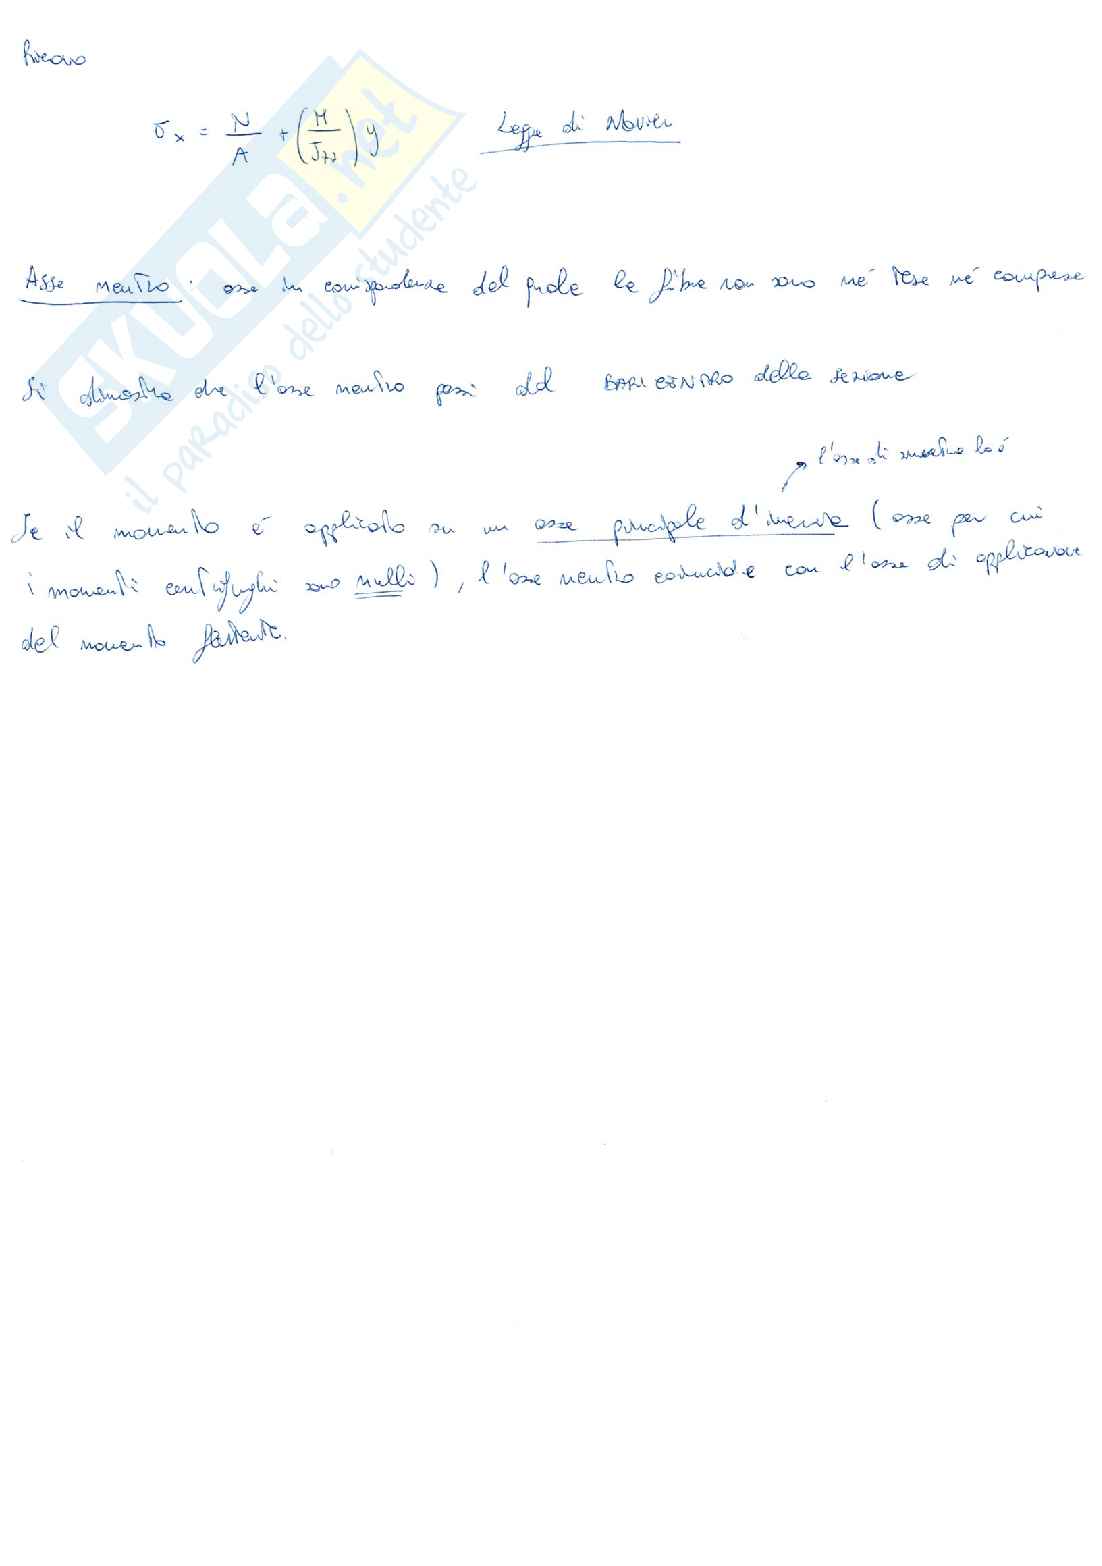 Ricavo
σx = N/A + (M/Jzz) y Legge di Navier
Asse neutro: asse in corrispondenza del quale le fibre non sono né tese né compresse
Si dimostra che l'asse neutro passi dal BARICENTRO della sezione
l'asse di simmetria lo è
Se il momento é applicato su un asse principale d'inerzia (asse per cui
i momenti centrifughi sono nulli), l'asse neutro coincide con l'asse di applicazione
del momento flettente.
SKUOLA.net
il paradiso dello studente